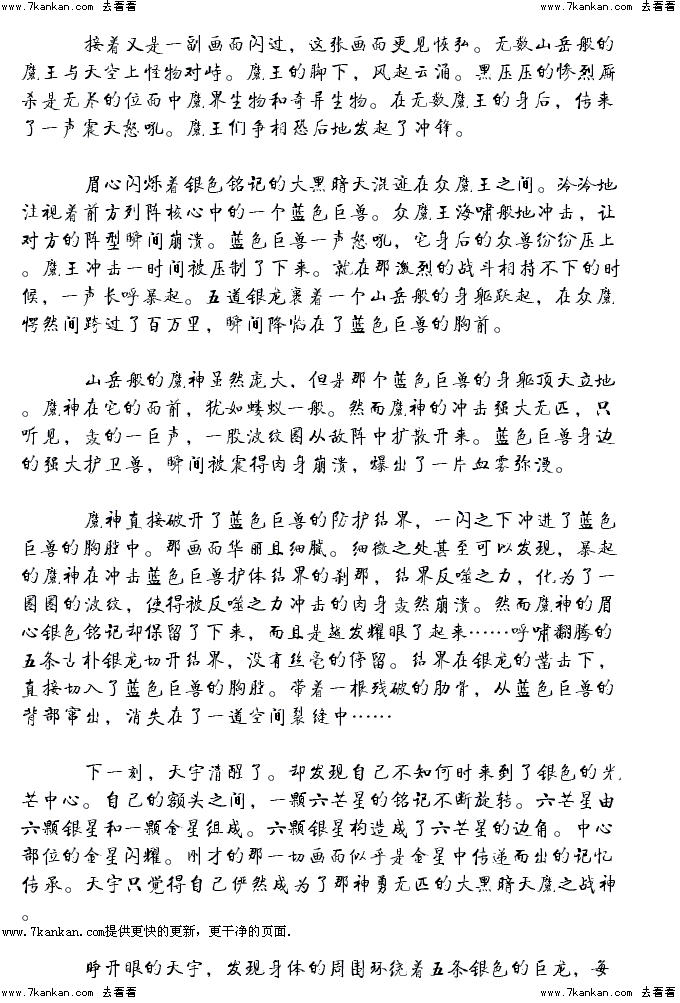 www.7kankan.com 去看看 www.7kankan.com 去看看
接着又是一副画面闪过，这张画面更见恢弘。无数山岳般的
魔王与天空上怪物对峙。魔王的脚下，风起云涌。黑压压的惨烈厮
杀是无尽的位面中魔界生物和奇异生物。在无数魔王的身后，传来
了一声震天怒吼。魔王们争相恐后地发起了冲锋。
眉心闪烁着银色铭记的大黑暗天混迹在众魔王之间。冷冷地
注视着前方列阵核心中的一个蓝色巨兽。众魔王海啸般地冲击，让
对方的阵型瞬间崩溃。蓝色巨兽一声怒吼，它身后的众兽纷纷压上
。魔王冲击一时间被压制了下来。就在那激烈的战斗相持不下的时
候，一声长呼暴起。五道银龙裹着一个山岳般的身躯跃起，在众魔
愕然间跨过了百万里，瞬间降临在了蓝色巨兽的胸前。
山岳般的魔神虽然庞大，但是那个蓝色巨兽的身躯顶天立地
。魔神在它的面前，犹如蝼蚁一般。然而魔神的冲击强大无匹，只
听见，轰的一巨声，一股波纹圈从敌阵中扩散开来。蓝色巨兽身边
的强大护卫兽，瞬间被震得肉身崩溃，爆出了一片血雾弥漫。
魔神直接破开了蓝色巨兽的防护结界，一闪之下冲进了蓝色
巨兽的胸腔中。那画面华丽且细腻。细微之处甚至可以发现，暴起
的魔神在冲击蓝色巨兽护体结界的刹那，结界反噬之力，化为了一
圈圈的波纹，使得被反噬之力冲击的肉身轰然崩溃。然而魔神的眉
心银色铭记却保留了下来，而且是越发耀眼了起来……呼啸翻腾的
五条古朴银龙切开结界，没有丝毫的停留。结界在银龙的凿击下，
直接切入了蓝色巨兽的胸腔。带着一根残破的肋骨，从蓝色巨兽的
背部窜出，消失在了一道空间裂缝中……
下一刻，天宇清醒了。却发现自己不知何时来到了银色的光
芒中心。自己的额头之间，一颗六芒星的铭记不断旋转。六芒星由
六颗银星和一颗金星组成。六颗银星构造成了六芒星的边角。中心
部位的金星闪耀。刚才的那一切画面似乎是金星中传递而出的记忆
传承。天宇只觉得自己俨然成为了那神勇无匹的大黑暗天魔之战神
。
www.7kankan.com提供更快的更新，更干净的页面.
睁开眼的天宇，发现身体的周围环绕着五条银色的巨龙，每
www.7kankan.com 去看看 www.7kankan.com 去看看